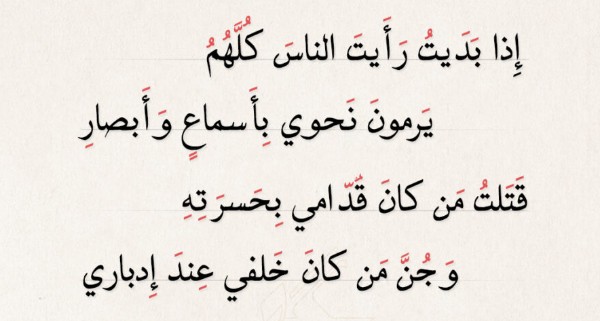 إِذا بَدَيتُ رَأَيتَ الناسَ كُلَّهُمُ
يَرمونَ نَحوي بِأَسماعٍ وَأَبصارِ
قَتَلتُ مَن كانَ قُدّامي بِحَسرَتِهِ
وَجُنَّ مَن كانَ خَلفي عِندَ إِدباري